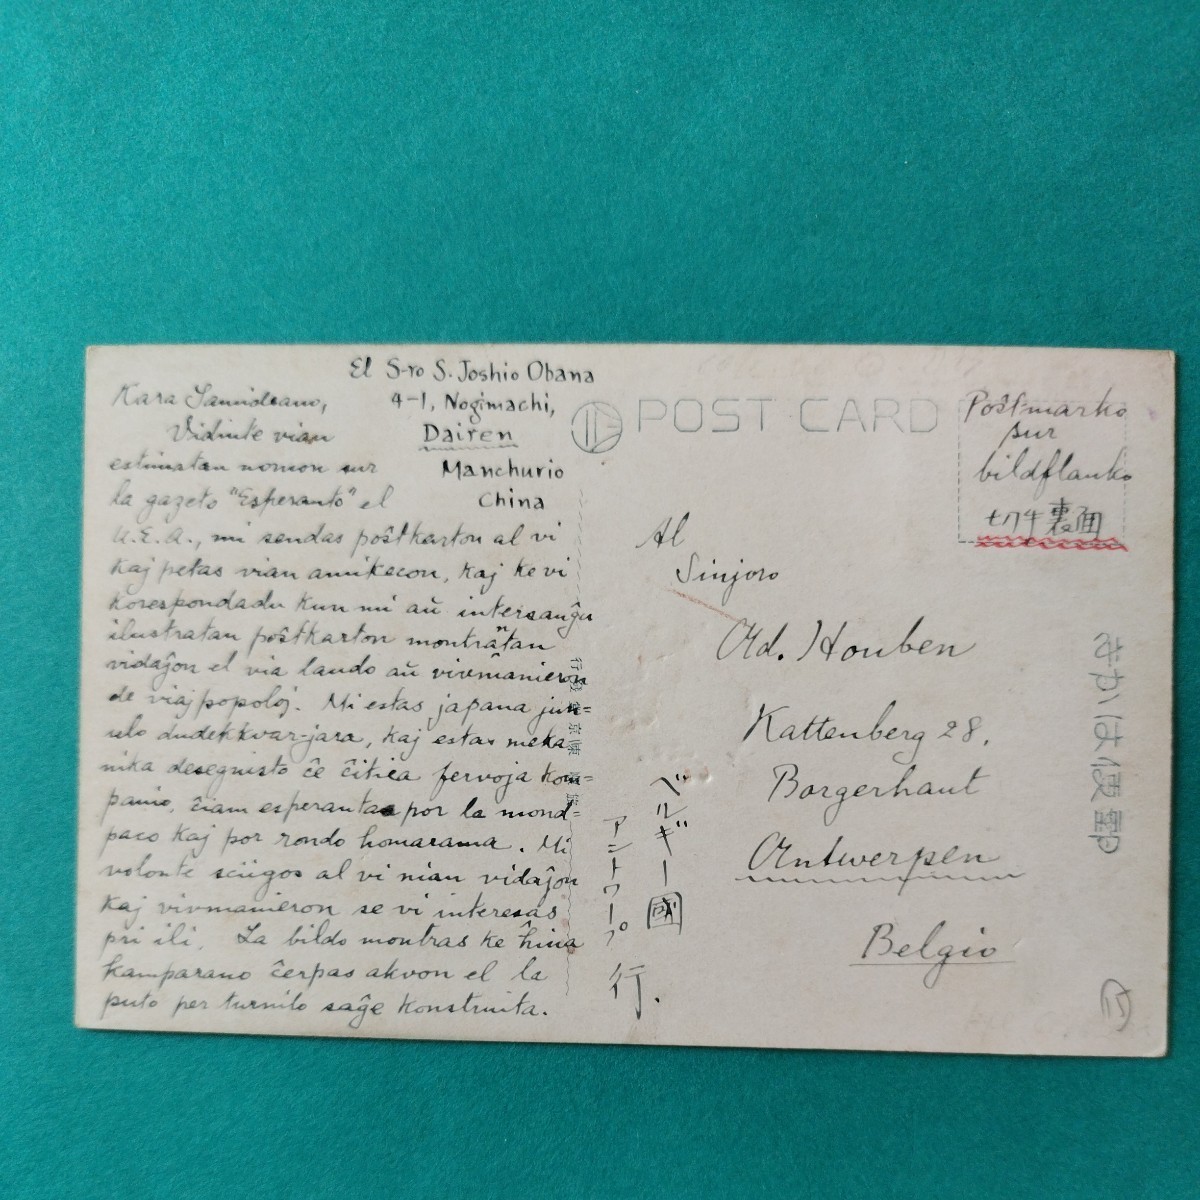 El S-ro S. Joshio Obana
4-1, Nogimachi,
Dairen
Manchurio
China
Kara Samideano,
Vidinte vian
estimatan nomon sur
la gazeto "Esperanto" el
U.E.A., mi sendas poŝtkarton al vi
kaj petas vian amikecon, kaj ke vi
korespondadu kun mi aŭ interŝanĝu
ilustratan poŝtkarton montratan
vidaĵon el via lando aŭ vivmanieron
de viaj popoloj. Mi estas japana jun=
ulo dudekkvar-jara, kaj estas meka
nika desegnisto ĉe ĉitiea fervoja kom=
panio, ĉiam esperantas por la mond=
paco kaj por rondo homarama. Mi
volonte sciigos al vi nian vidaĵon
kaj vivmanieron se vi interesas
pri ili. La bildo montras ke ĥina
kamparano ĉerpas akvon el la
puto per turnilo saĝe konstruita.
POST CARD
Poŝtmarko
sur
bildflanko
切手裏面
Al
Sinjoro
Ad. Houben
Kattenberg 28.
Borgerhaut
Antwerpen
Belgio
ベルギー國
アントワープ行.
きかは便郵